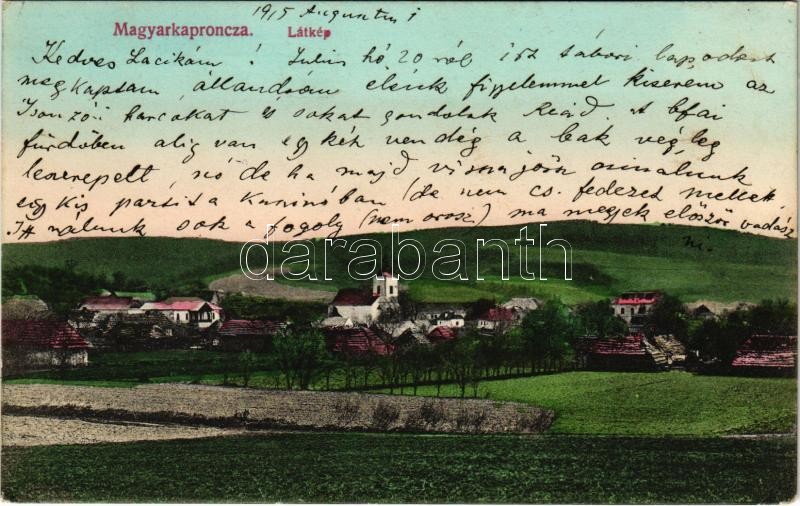 1915 Augustus 1
Magyarkaproncza. Látkép
Kedves Lacikám! Julius hó 20 ról írt tábori lapodat
megkaptam, állandóan élénk figyelemmel kiserem az
Isonzói harcokat és sokat gondolok Reád. A
fürdőben alig van egy két vendég a bak végleg
leszerepelt, nó de ha majd vissza jösz csinálunk
egy kis partit a Kaninóban (de nem cs. fedezet mellett
Itt nálunk sok a fogoly (nem orosz) ma megyek először vadász
ni.
darabanth